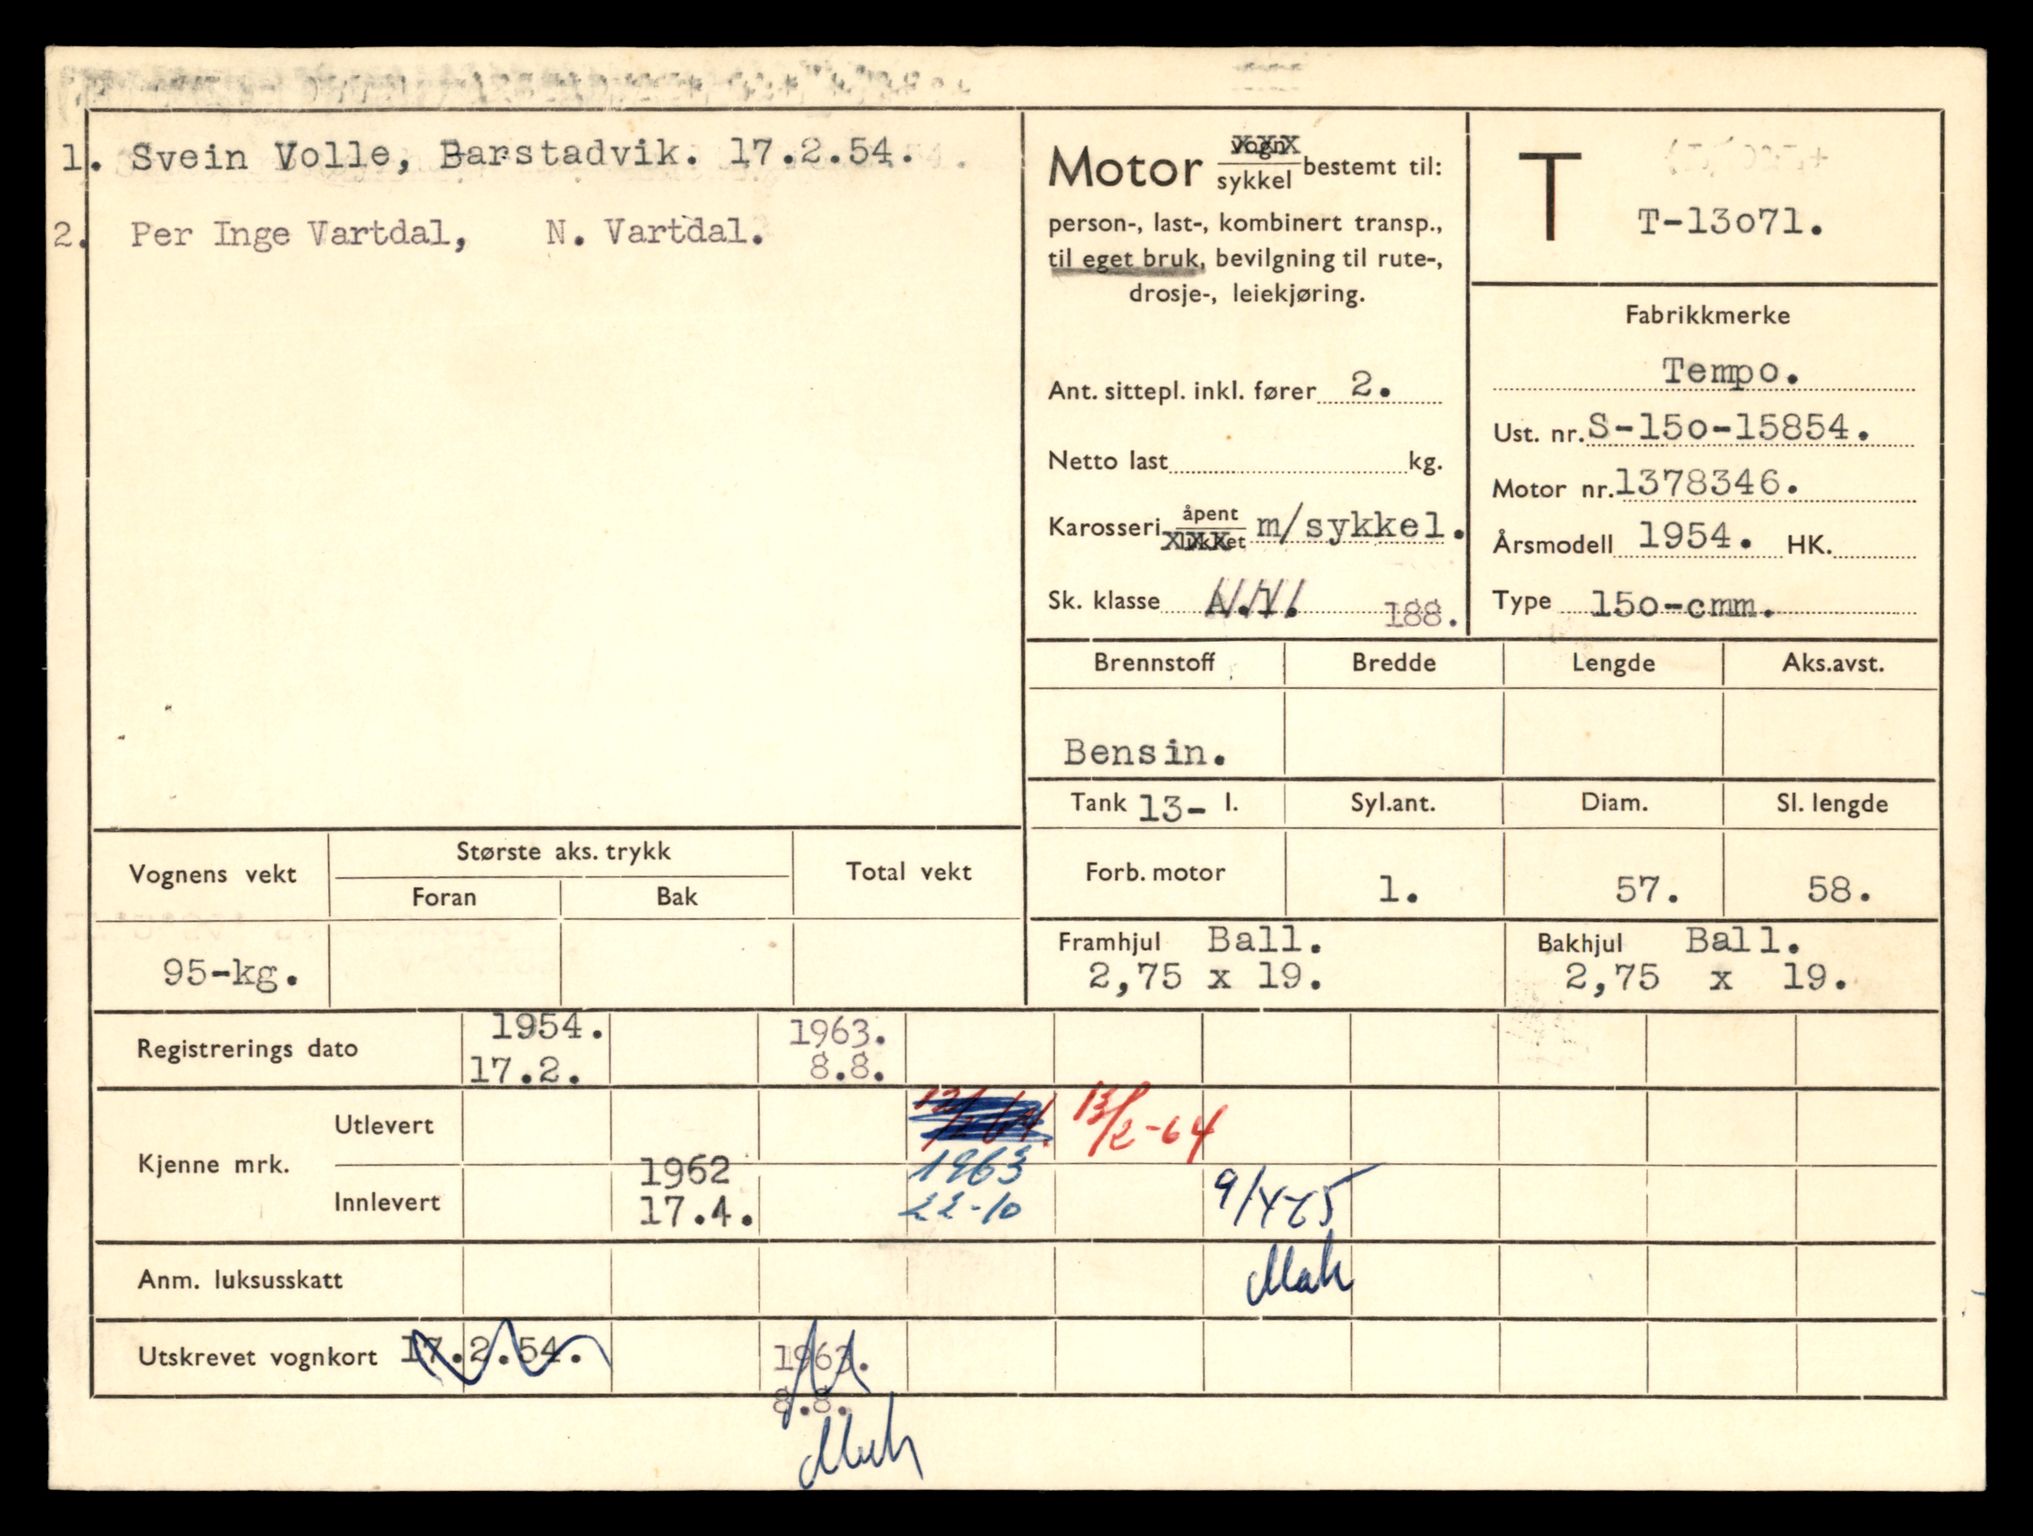 1. Svein Volle, Barstadvik. 17.2.54.
2. Per Inge Vartdal, N. Vartdal.
Motor vogn sykkel bestemt til:
person-, last-, kombinert transp.,
til eget bruk, bevilgning til rute-,
drosje-, leiekjøring.
Ant. sittepl. inkl. fører 2.
Netto last kg.
Karosseri åpent lukket m/sykkel.
Sk. klasse A.1. 188.
T
T-13o71.
Fabrikkmerke
Tempo.
Ust. nr. S-15o-15854.
Motor nr. 1378346.
Årsmodell 1954. HK.
Type 15o-cmm.
Brennstoff Bredde Lengde Aks.avst.
Bensin.
Tank 13- l. Syl.ant. Diam. Sl. lengde
Forb. motor 1. 57. 58.
Framhjul Ball. Bakhjul Ball.
2,75 x 19. 2,75 x 19.
Vognens vekt Største aks. trykk Total vekt
Foran Bak
95-kg.
Registrerings dato 1954. 1963.
17.2. 8.8.
Kjenne mrk.
Utlevert 13/2-64
Innlevert 1962 1963
17.4. 22-10 9/4-65
Anm. luksusskatt Mah
Utskrevet vognkort 17.2.54. 1963.
8.8.
Mah